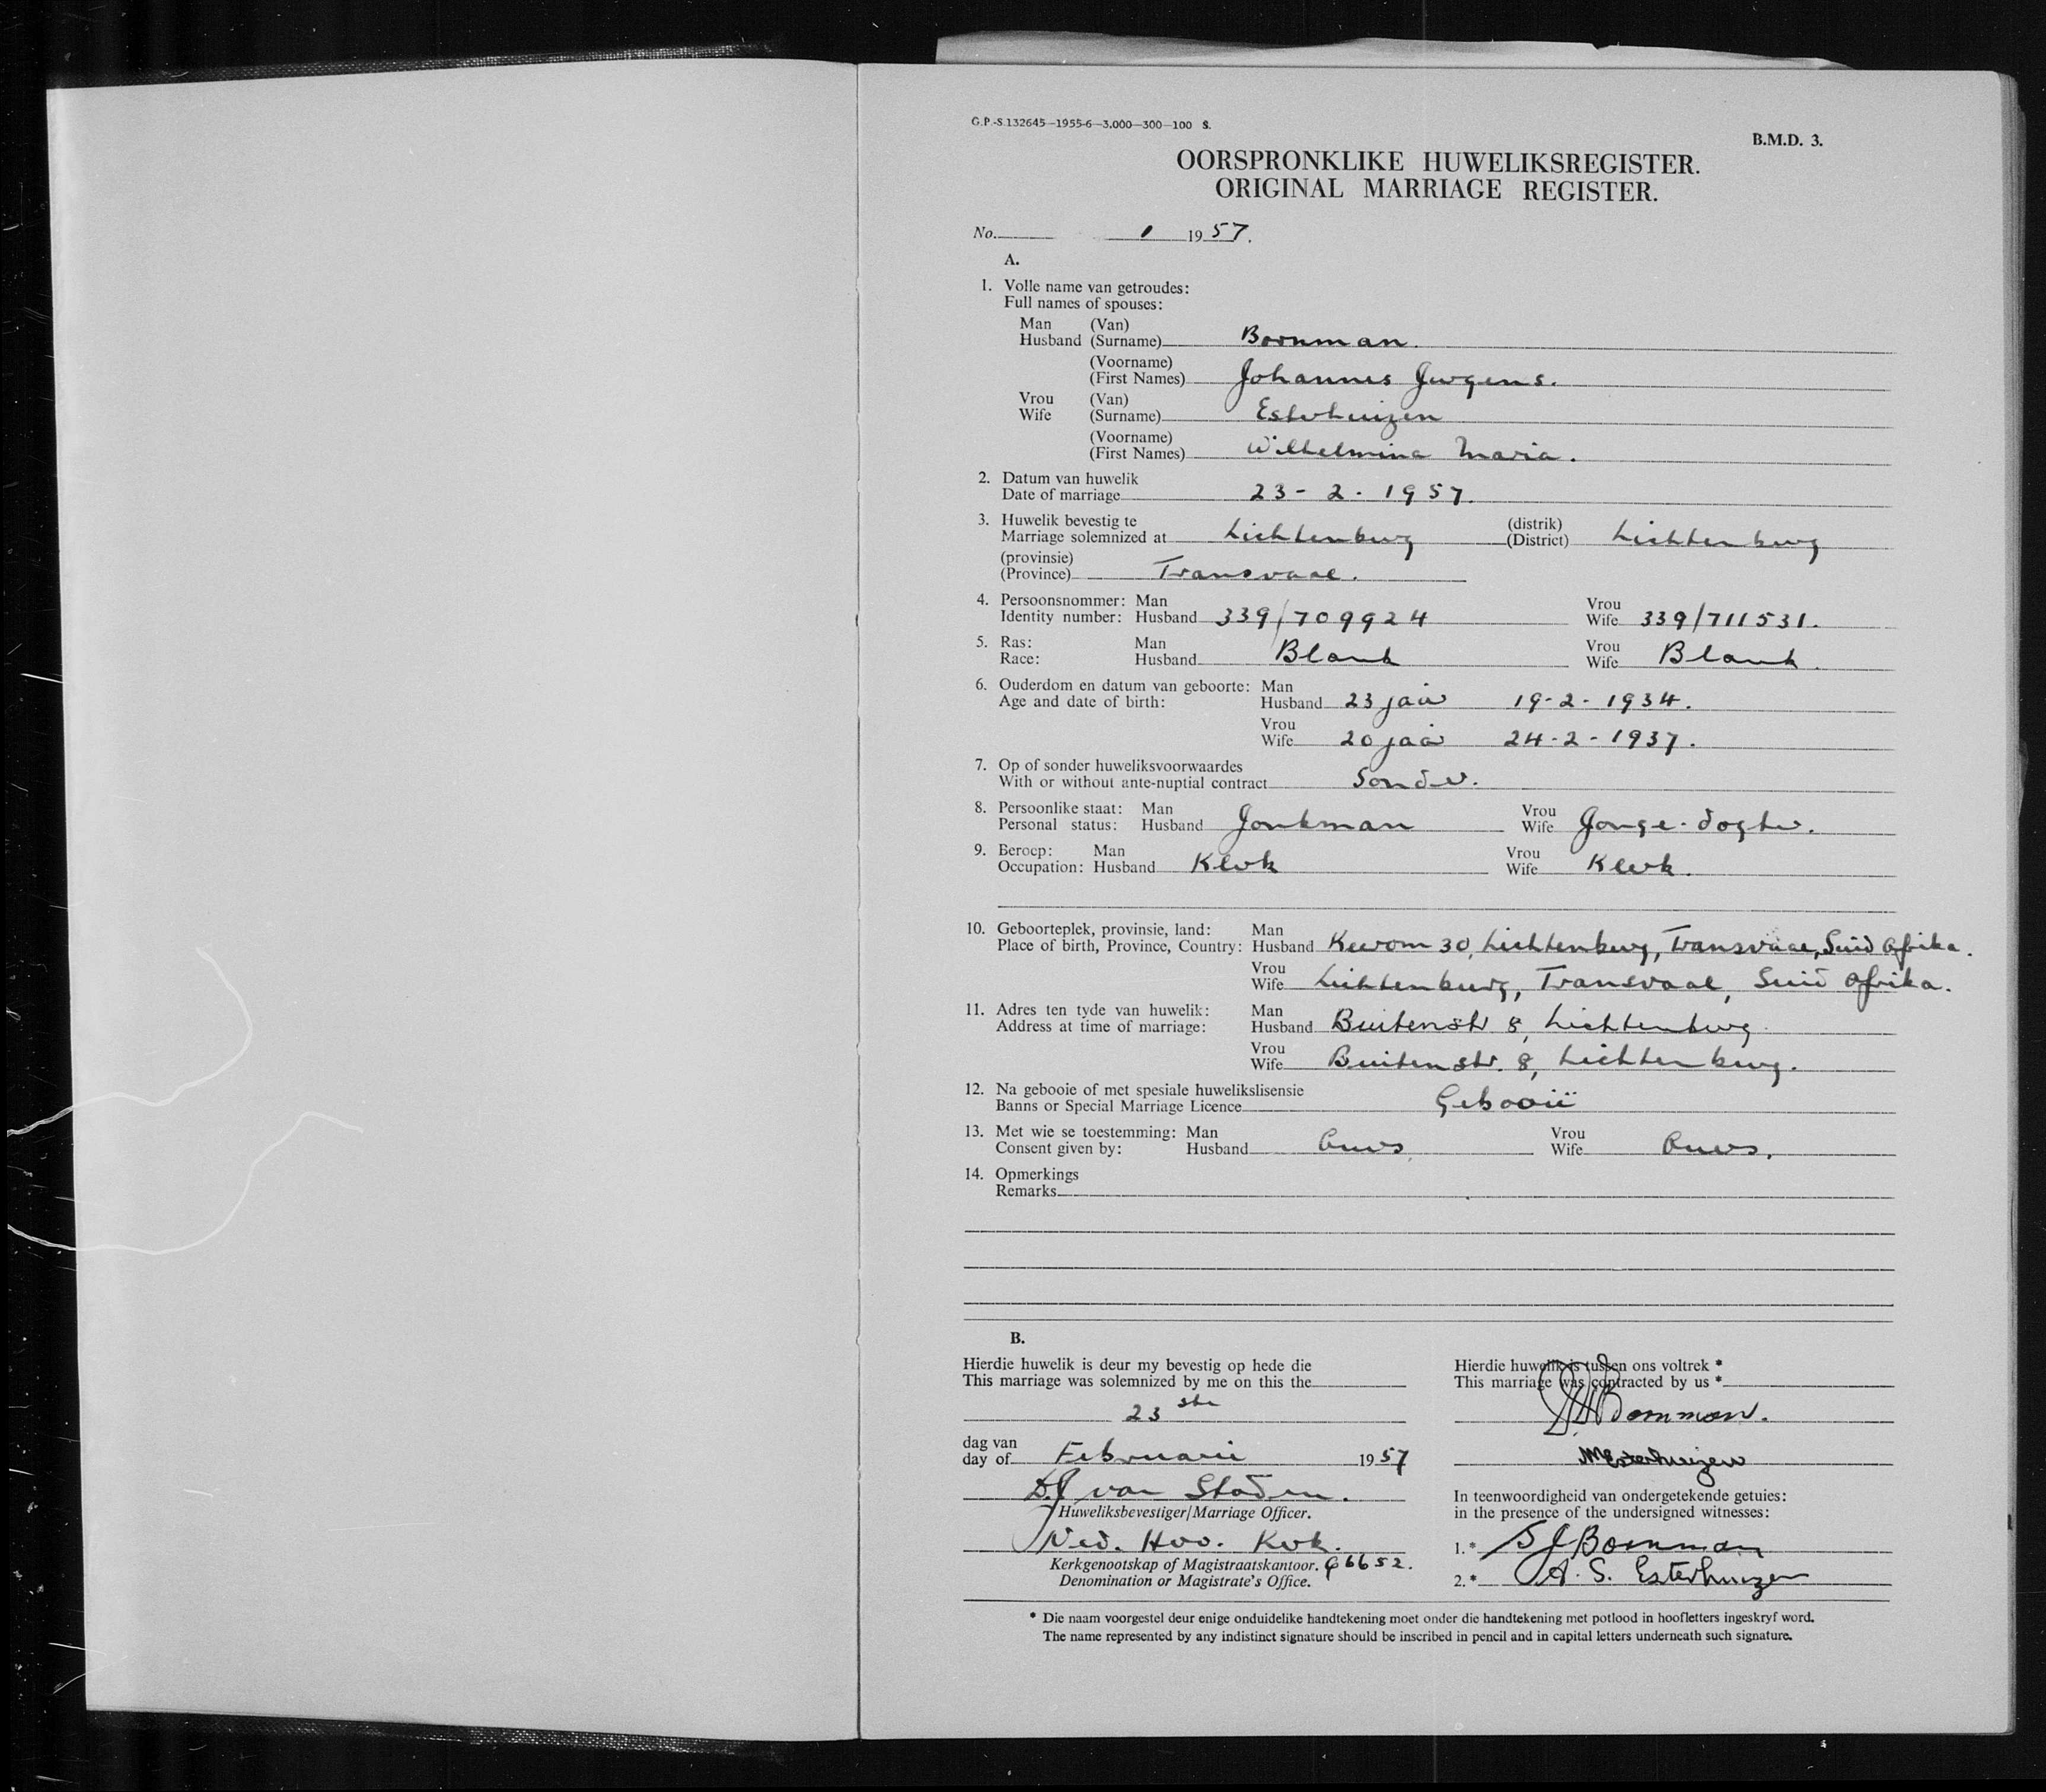 G.P.-S.132645—1955-6—3.000—300—100 S.
B.M.D. 3.
OORSPRONKLIKE HUWELIKSREGISTER.
ORIGINAL MARRIAGE REGISTER.
No. 1 1957.
A.
1. Volle name van getroudes:
Full names of spouses:
Man (Van)
Husband (Surname) Bornman.
(Voorname)
(First Names) Johannes Jurgens.
Vrou (Van)
Wife (Surname) Esterhuizen
(Voorname)
(First Names) Wilhelmina Maria.
2. Datum van huwelik
Date of marriage 23-2.1957.
3. Huwelik bevestig te (distrik)
Marriage solemnized at Lichtenburg (District) Lichtenburg
(provinsie)
(Province) Transvaal.
4. Persoonsnommer: Man Vrou
Identity number: Husband 339/709924 Wife 339/711531.
5. Ras: Man Vrou
Race: Husband Blank Wife Blank.
6. Ouderdom en datum van geboorte: Man
Age and date of birth: Husband 23 jaar 19-2-1934.
Vrou
Wife 20 jaar 24-2-1937.
7. Op of sonder huweliksvoorwaardes
With or without ante-nuptial contract Sonder.
8. Persoonlike staat: Man Vrou
Personal status: Husband Jonkman Wife Jonge-dogter.
9. Beroep: Man Vrou
Occupation: Husband Klerk Wife Klerk.
10. Geboorteplek, provinsie, land: Man
Place of birth, Province, Country: Husband 30, Lichtenburg, Transvaal, Suid Afrika.
Vrou
Wife Lichtenburg, Transvaal, Suid Afrika.
11. Adres ten tyde van huwelik: Man
Address at time of marriage: Husband Buitenstr 8, Lichtenburg
Vrou
Wife Buitenstr. 8, Lichtenburg.
12. Na gebooie of met spesiale huwelikslisensie
Banns or Special Marriage Licence Gebooië
13. Met wie se toestemming: Man Vrou
Consent given by: Husband Ouers, Wife Ouers.
14. Opmerkings
Remarks
B.
Hierdie huwelik is deur my bevestig op hede die
This marriage was solemnized by me on this the
23 ste
dag van
day of Februarie 1957
D.J van Staden.
Huweliksbevestiger/Marriage Officer.
Ned. Herv. Kerk.
Kerkgenootskap of Magistraatskantoor. G6652.
Denomination or Magistrate's Office.
Hierdie huwelik is tussen ons voltrek *
This marriage was contracted by us *
JJ Bornman.
WM Esterhuizen
In teenwoordigheid van ondergetekende getuies:
in the presence of the undersigned witnesses:
1.* S J Bornman
2.* A. S. Esterhuizen
* Die naam voorgestel deur enige onduidelike handtekening moet onder die handtekening met potlood in hoofletters ingeskryf word.
The name represented by any indistinct signature should be inscribed in pencil and in capital letters underneath such signature.